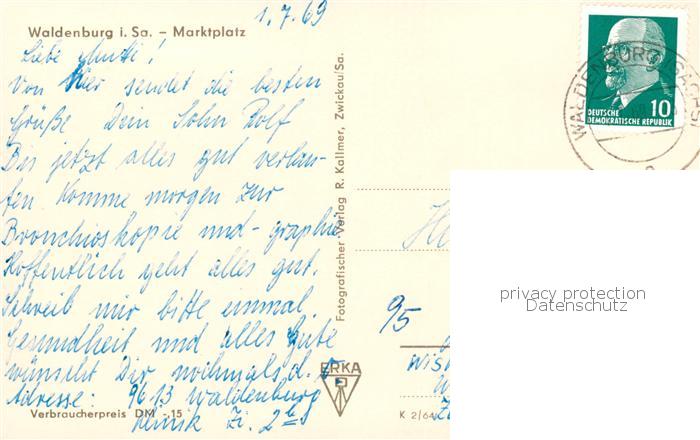 1.7.69
Waldenburg i. Sa. – Marktplatz
Liebe Mutti!
Von hier sendet die besten
Grüße Dein Sohn Rolf
Bis jetzt alles gut verlau-
fen. Komme morgen zur
Bronchioskopie und -graphie.
Hoffentlich geht alles gut.
Schreib mir bitte einmal.
Gesundheit und alles Gute
wünscht Dir nochmals d. S.
Adresse: 9613 Waldenburg
Klinik Zi. 2
Verbraucherpreis DM -.15
Fotografischer Verlag R. Kallmer, Zwickau/Sa.
ERKA
K 2/64
95
10
DEUTSCHE
DEMOKRATISCHE REPUBLIK
WALDENBURG (SACHS)
privacy protection
Datenschutz